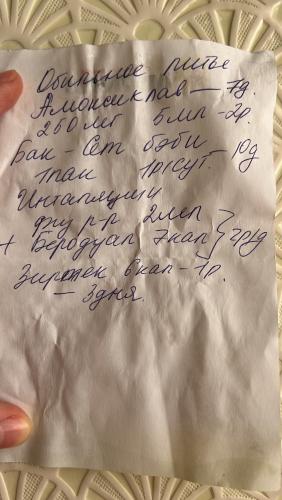 Обильное питье
Амоксиклав — 7д.
250 мг 5мл - 2р.
Бак - Сет бэби — 10д
1пак 1р/сут.
Ингаляции
физ р-р 2мл
+ Беродуал 7кап } 2р/д
Зиртек 6кап - 1р.
— 3дня.